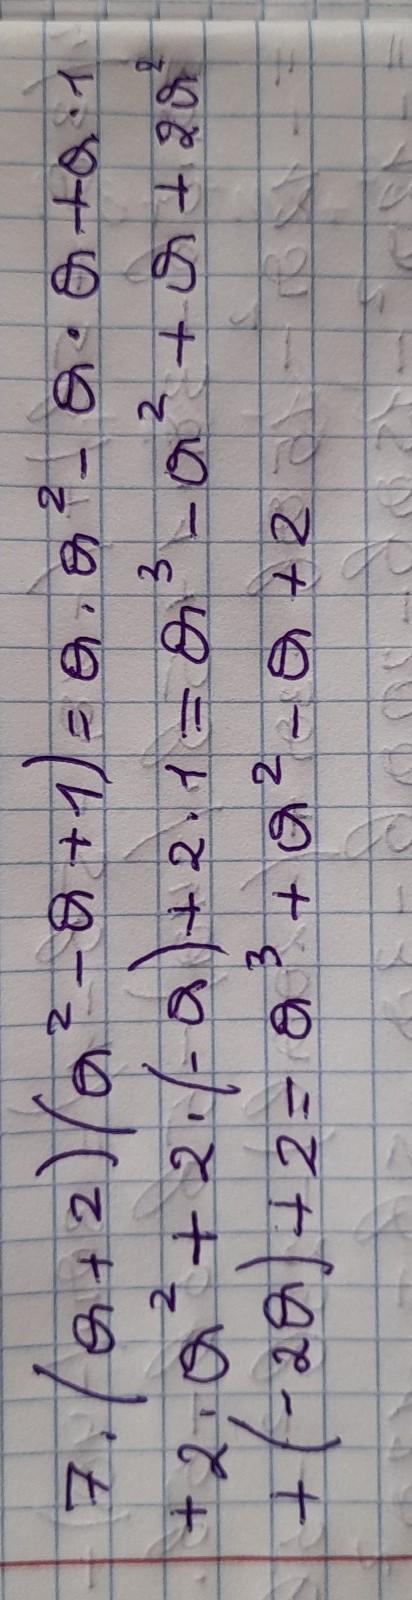 7. (a+2)(a²-a+1)=a·a²-a·a+a·1
+2·a²+2·(-a)+2·1=a³-a²+a+2a²
+(-2a)+2=a³+a²-a+2